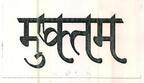 मुक्तम